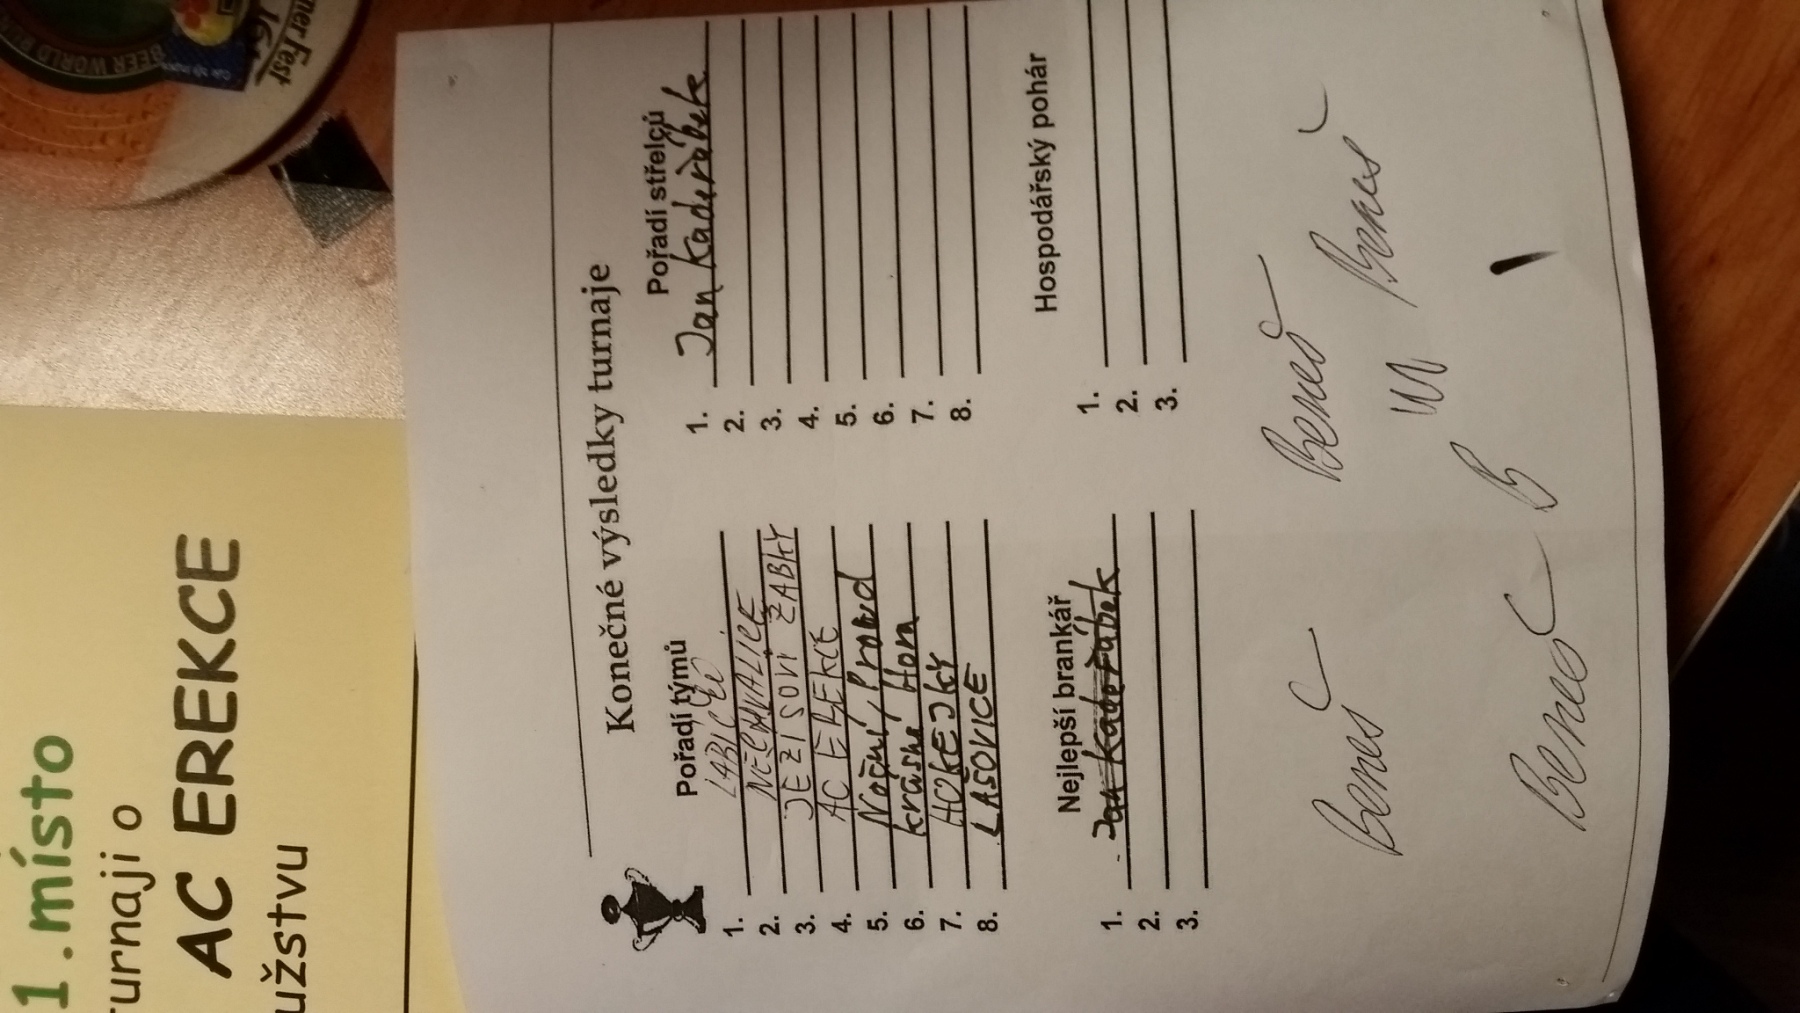 1.místo
turnaji o
AC EREKCE
užstvu
Konečné výsledky turnaje
Pořadí týmů
1. LABIČÁCI
2. NĚČMVALICE
3. JEZISOVI ŽABKY
4. AC EREKCE
5. Noční Proud
6. krásná Hora
7. HOKEJKY
8. LAŠOVICE
Pořadí střelců
1. Jan Kadeřábek
2.
3.
4.
5.
6.
7.
8.
Nejlepší brankář
1. Jan Kadeřábek
2.
3.
Hospodářský pohár
1.
2.
3.
Beneš
Beneš
Beneš
Beneš
B
BEER WORLD